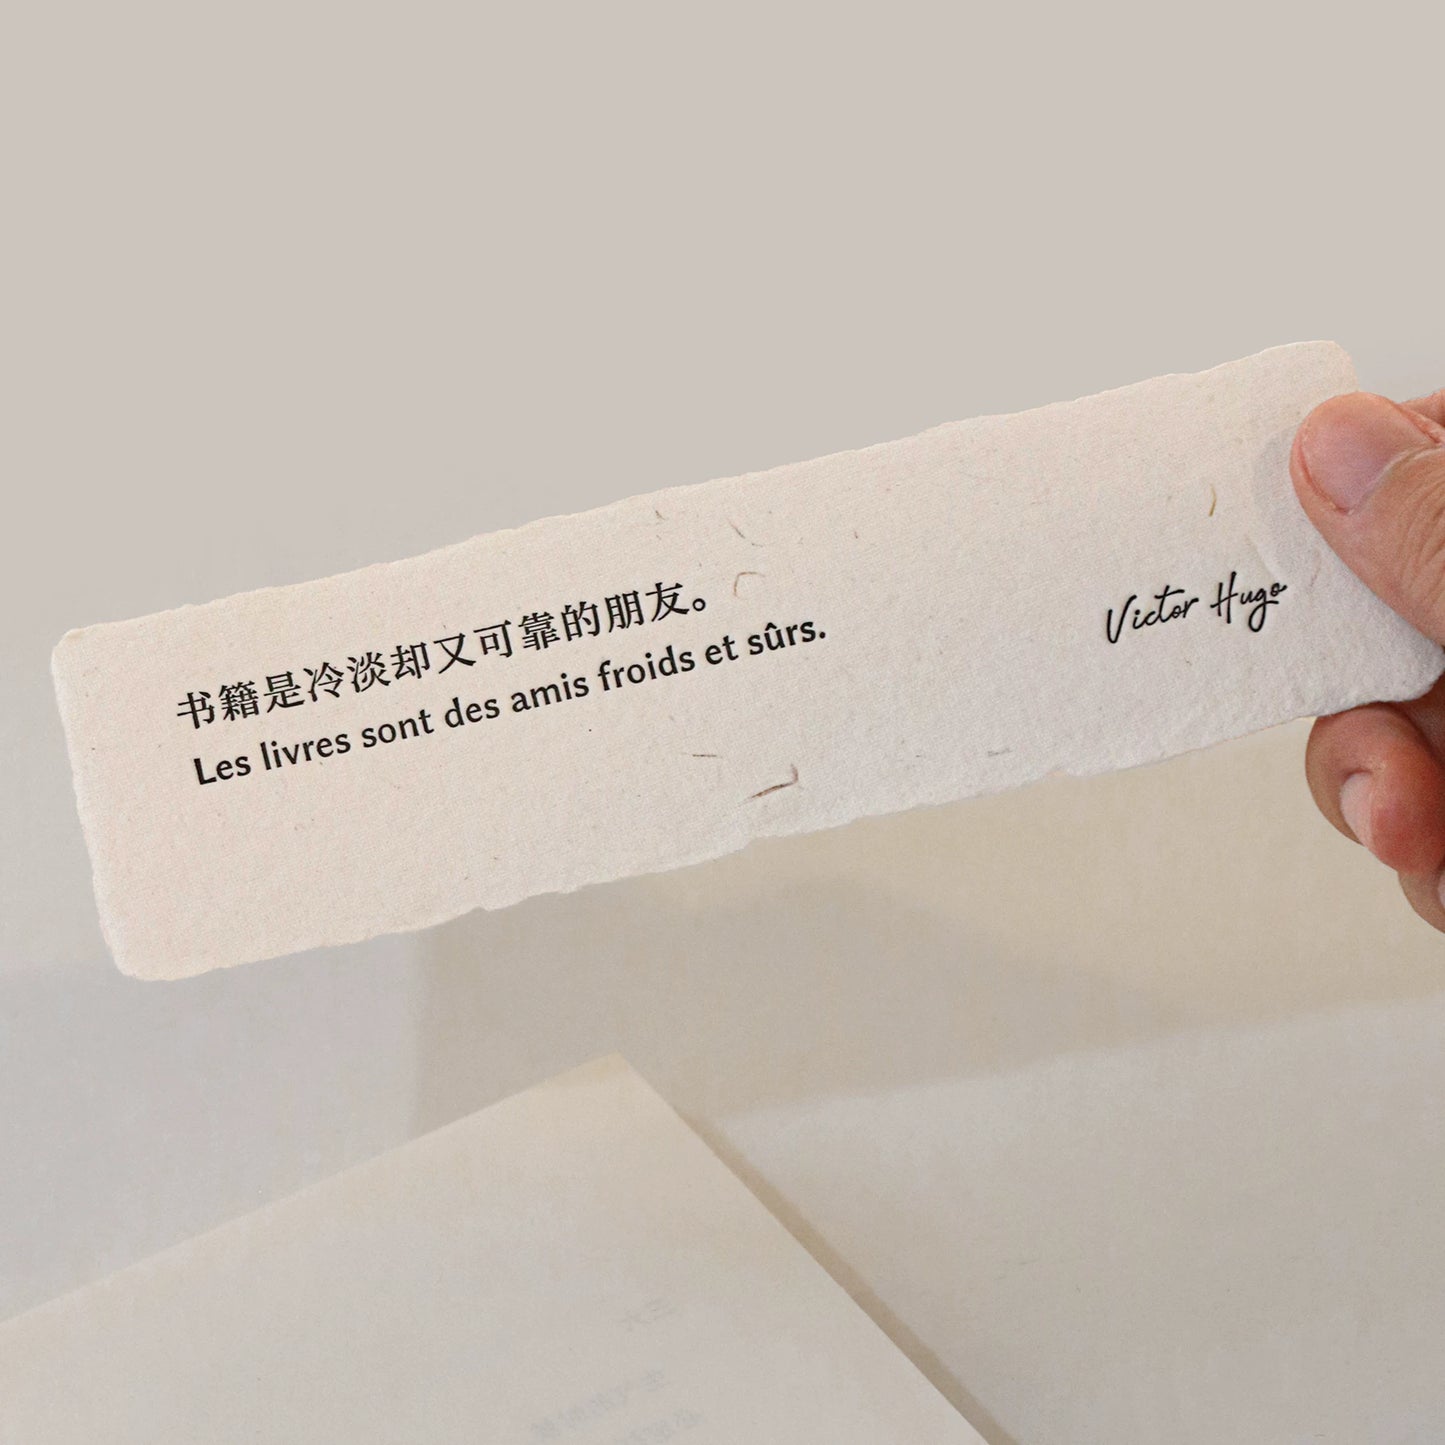 书籍是冷淡却又可靠的朋友。
Les livres sont des amis froids et sûrs.
Victor Hugo